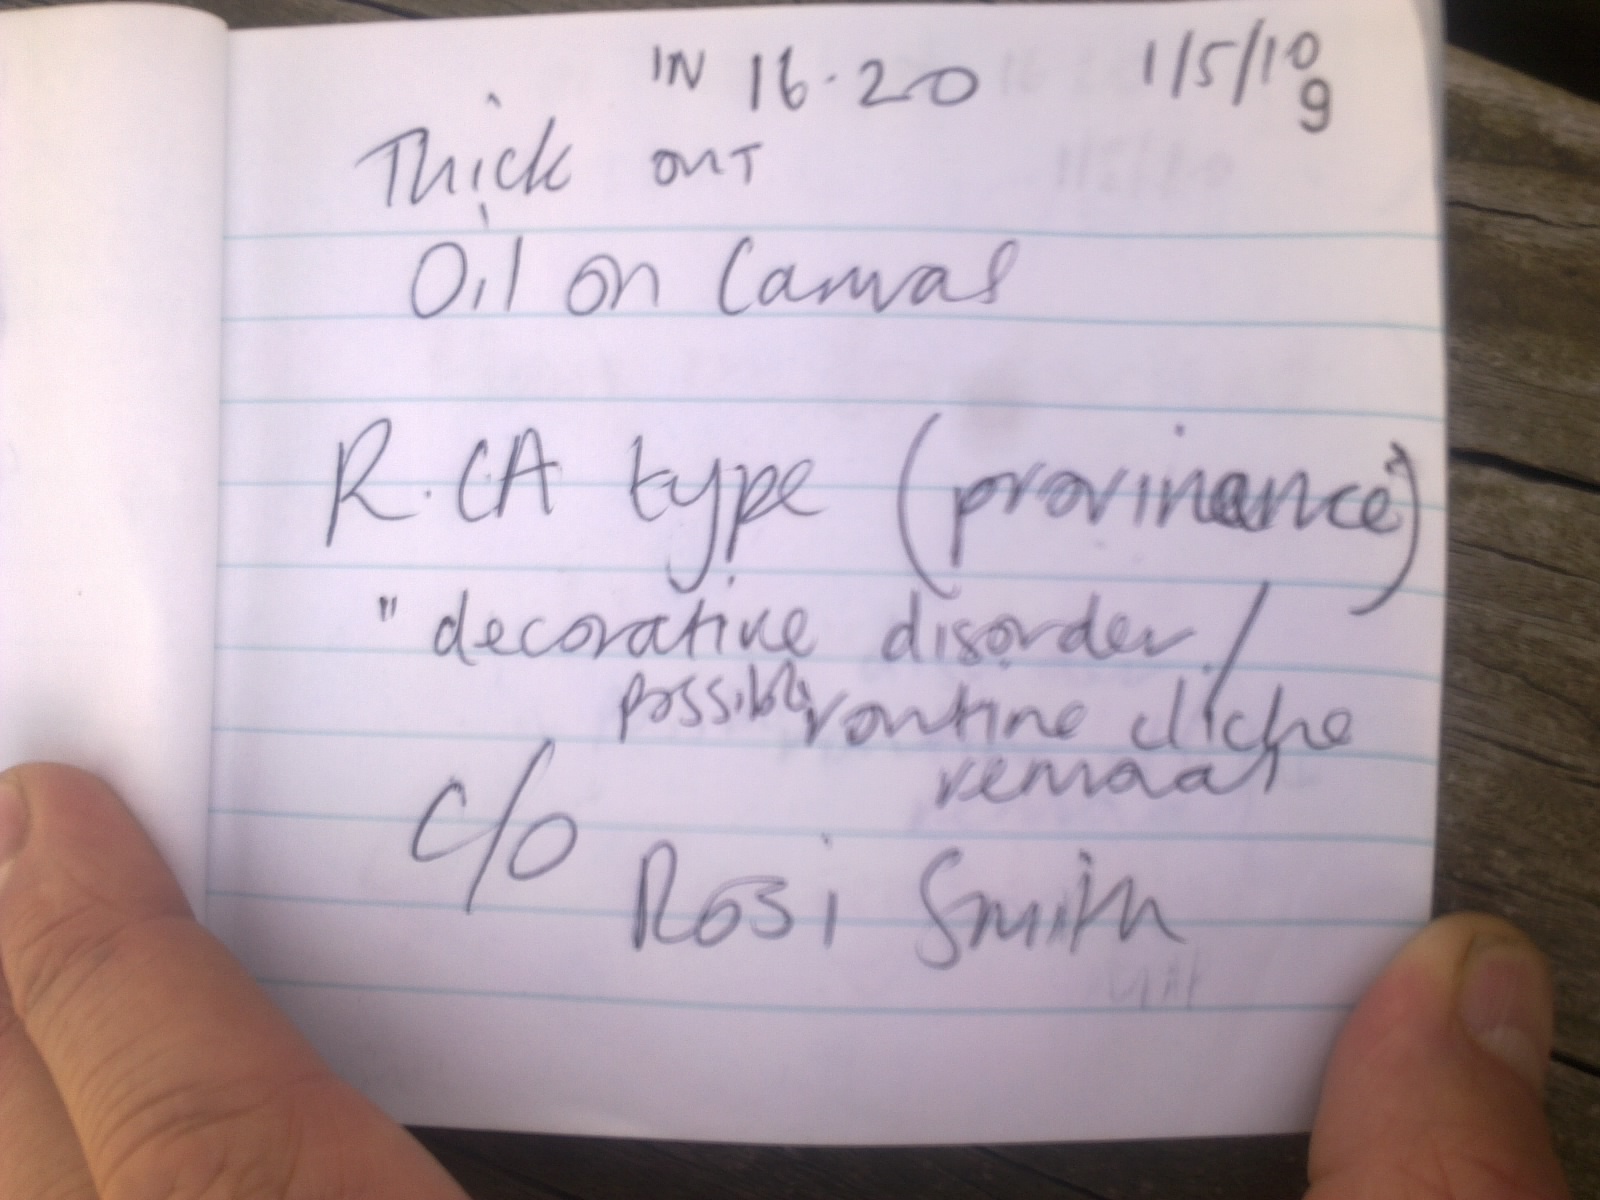 IN 16.20 1/5/10
9
Thick OUT
Oil on Canvas
R.CA type (provinance)
"decorative disorder./
possibly routine cliche
c/o
Rosi Smith